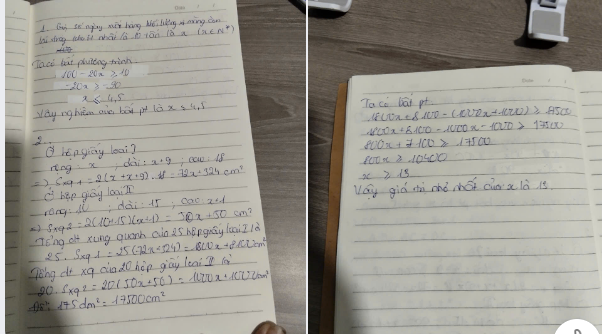 1. Gọi số ngày mà cửa hàng bán
là x (x ∈ N*)
Ta có bất phương trình
100 - 20x ≥ 10
-20x ≥ -90
x ≤ 4,5
Vậy nghiệm của bất pt là x ≥ 4,5
2.
Ở hộp giấy loại I
rộng x, dài: x+9, cao: 18
=> Sxq1 = 2(x+x+9).18 = 72x+324 cm²
Ở hộp giấy loại II
rộng: 10, dài: 15, cao x+1
=> Sxq2 = 2(10+15)(x+1) = 50x+50 cm²
Tổng dt xung quanh của 25 hộp giấy loại I là
25. Sxq1 = 25(72x+324) = 1800x+8100cm²
Tổng dt xq của 20 hộp giấy loại II là
20. Sxq2 = 20(50x+50) = 1000x+1000cm²
175 dm² = 17500cm²
Ta có bất pt
1800x+8100-(1000x+1000) ≥ 17500
1800x+8100-1000x-1000 ≥ 17500
800x+7100 ≥ 17500
800x ≥ 10400
x ≥ 13
Vậy giá trị nhỏ nhất của x là 13.